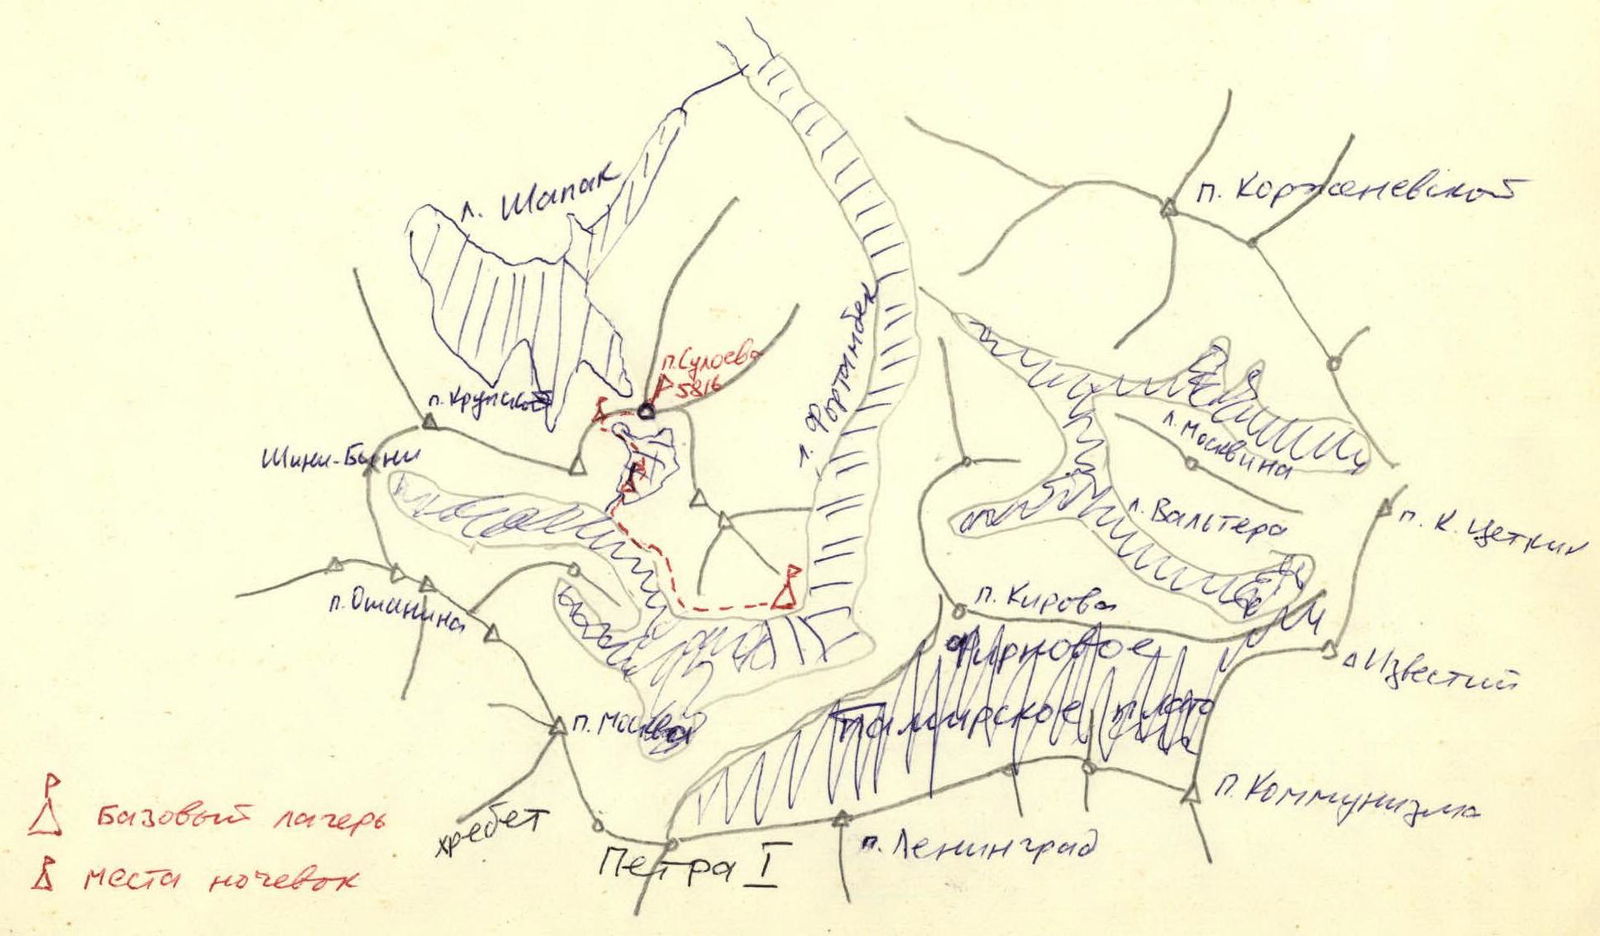 л. Шапак
п. Корженевской
п. Сулоева
5816
л. Фортамбек
п. Крупской
Шини-Бини
л. Москвина
л. Вальтера
п. К. Цеткин
п. Ошанина
п. Кирова
Фирновое
Известий
Памирское плато
п. Москва
п. Коммунизма
Базовый лагерь
хребет
Петра I
п. Ленинград
места ночевок